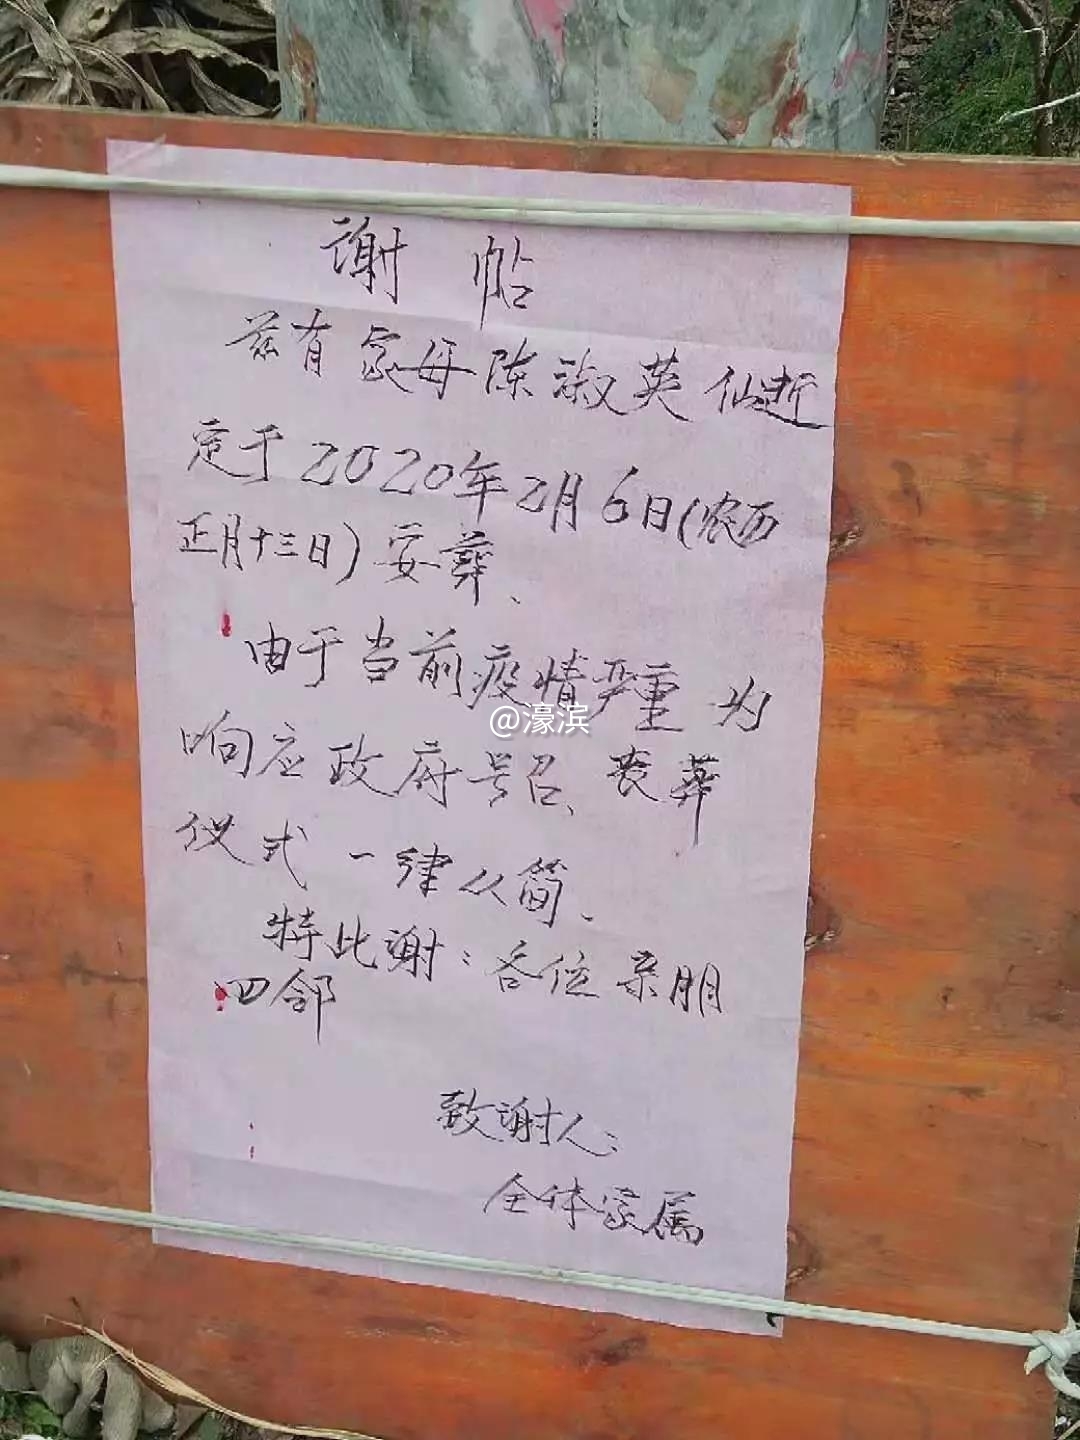 谢帖
兹有家母陈淑英仙逝
定于2020年2月6日(农历
正月十三日)安葬、
由于当前疫情严重为
@濠滨
响应政府号召、丧葬
仪式一律从简、
特此谢:各位亲朋
四邻
致谢人:
全体家属